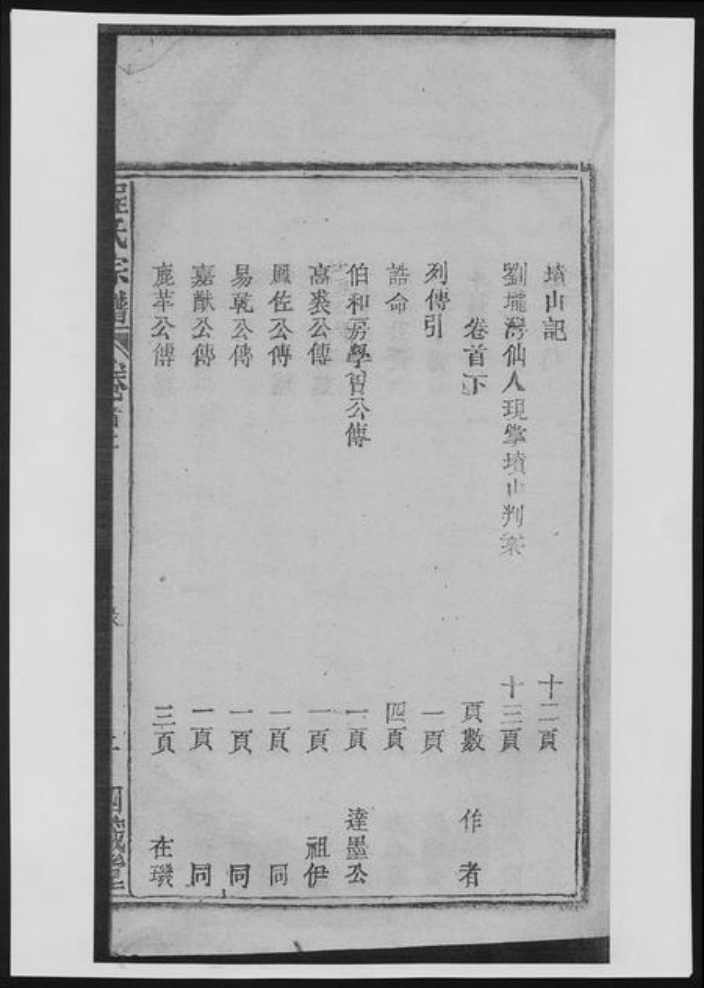 墳山記 十二頁
劉壠灣仙人現掌墳山判案 十三頁
卷首下 頁數 作者
列傳引 一頁
誥命 四頁
伯和房學習公傳 一頁 達墨公
高裘公傳 一頁 祖伊
鳳佐公傳 一頁 同
易乾公傳 一頁 同
嘉猷公傳 一頁 同
鹿苹公傳 三頁 在璣
氏宗譜 卷首